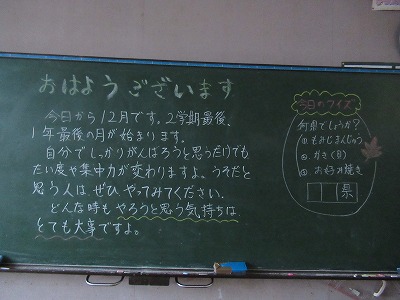 おはようございます
今日から12月です。2学期最後、
1年最後の月が始まります。
自分でしっかりがんばろうと思っただけでも
たい度や集中力が変わりますよ。うそだと
思う人は ぜひ やってみてください。
どんな時も やろうと思う気持ちは
とても大事ですよ。
今日のクイズ
何県でしょうか?
①もみじまんじゅう
②かき(貝)
③お好み焼き
県